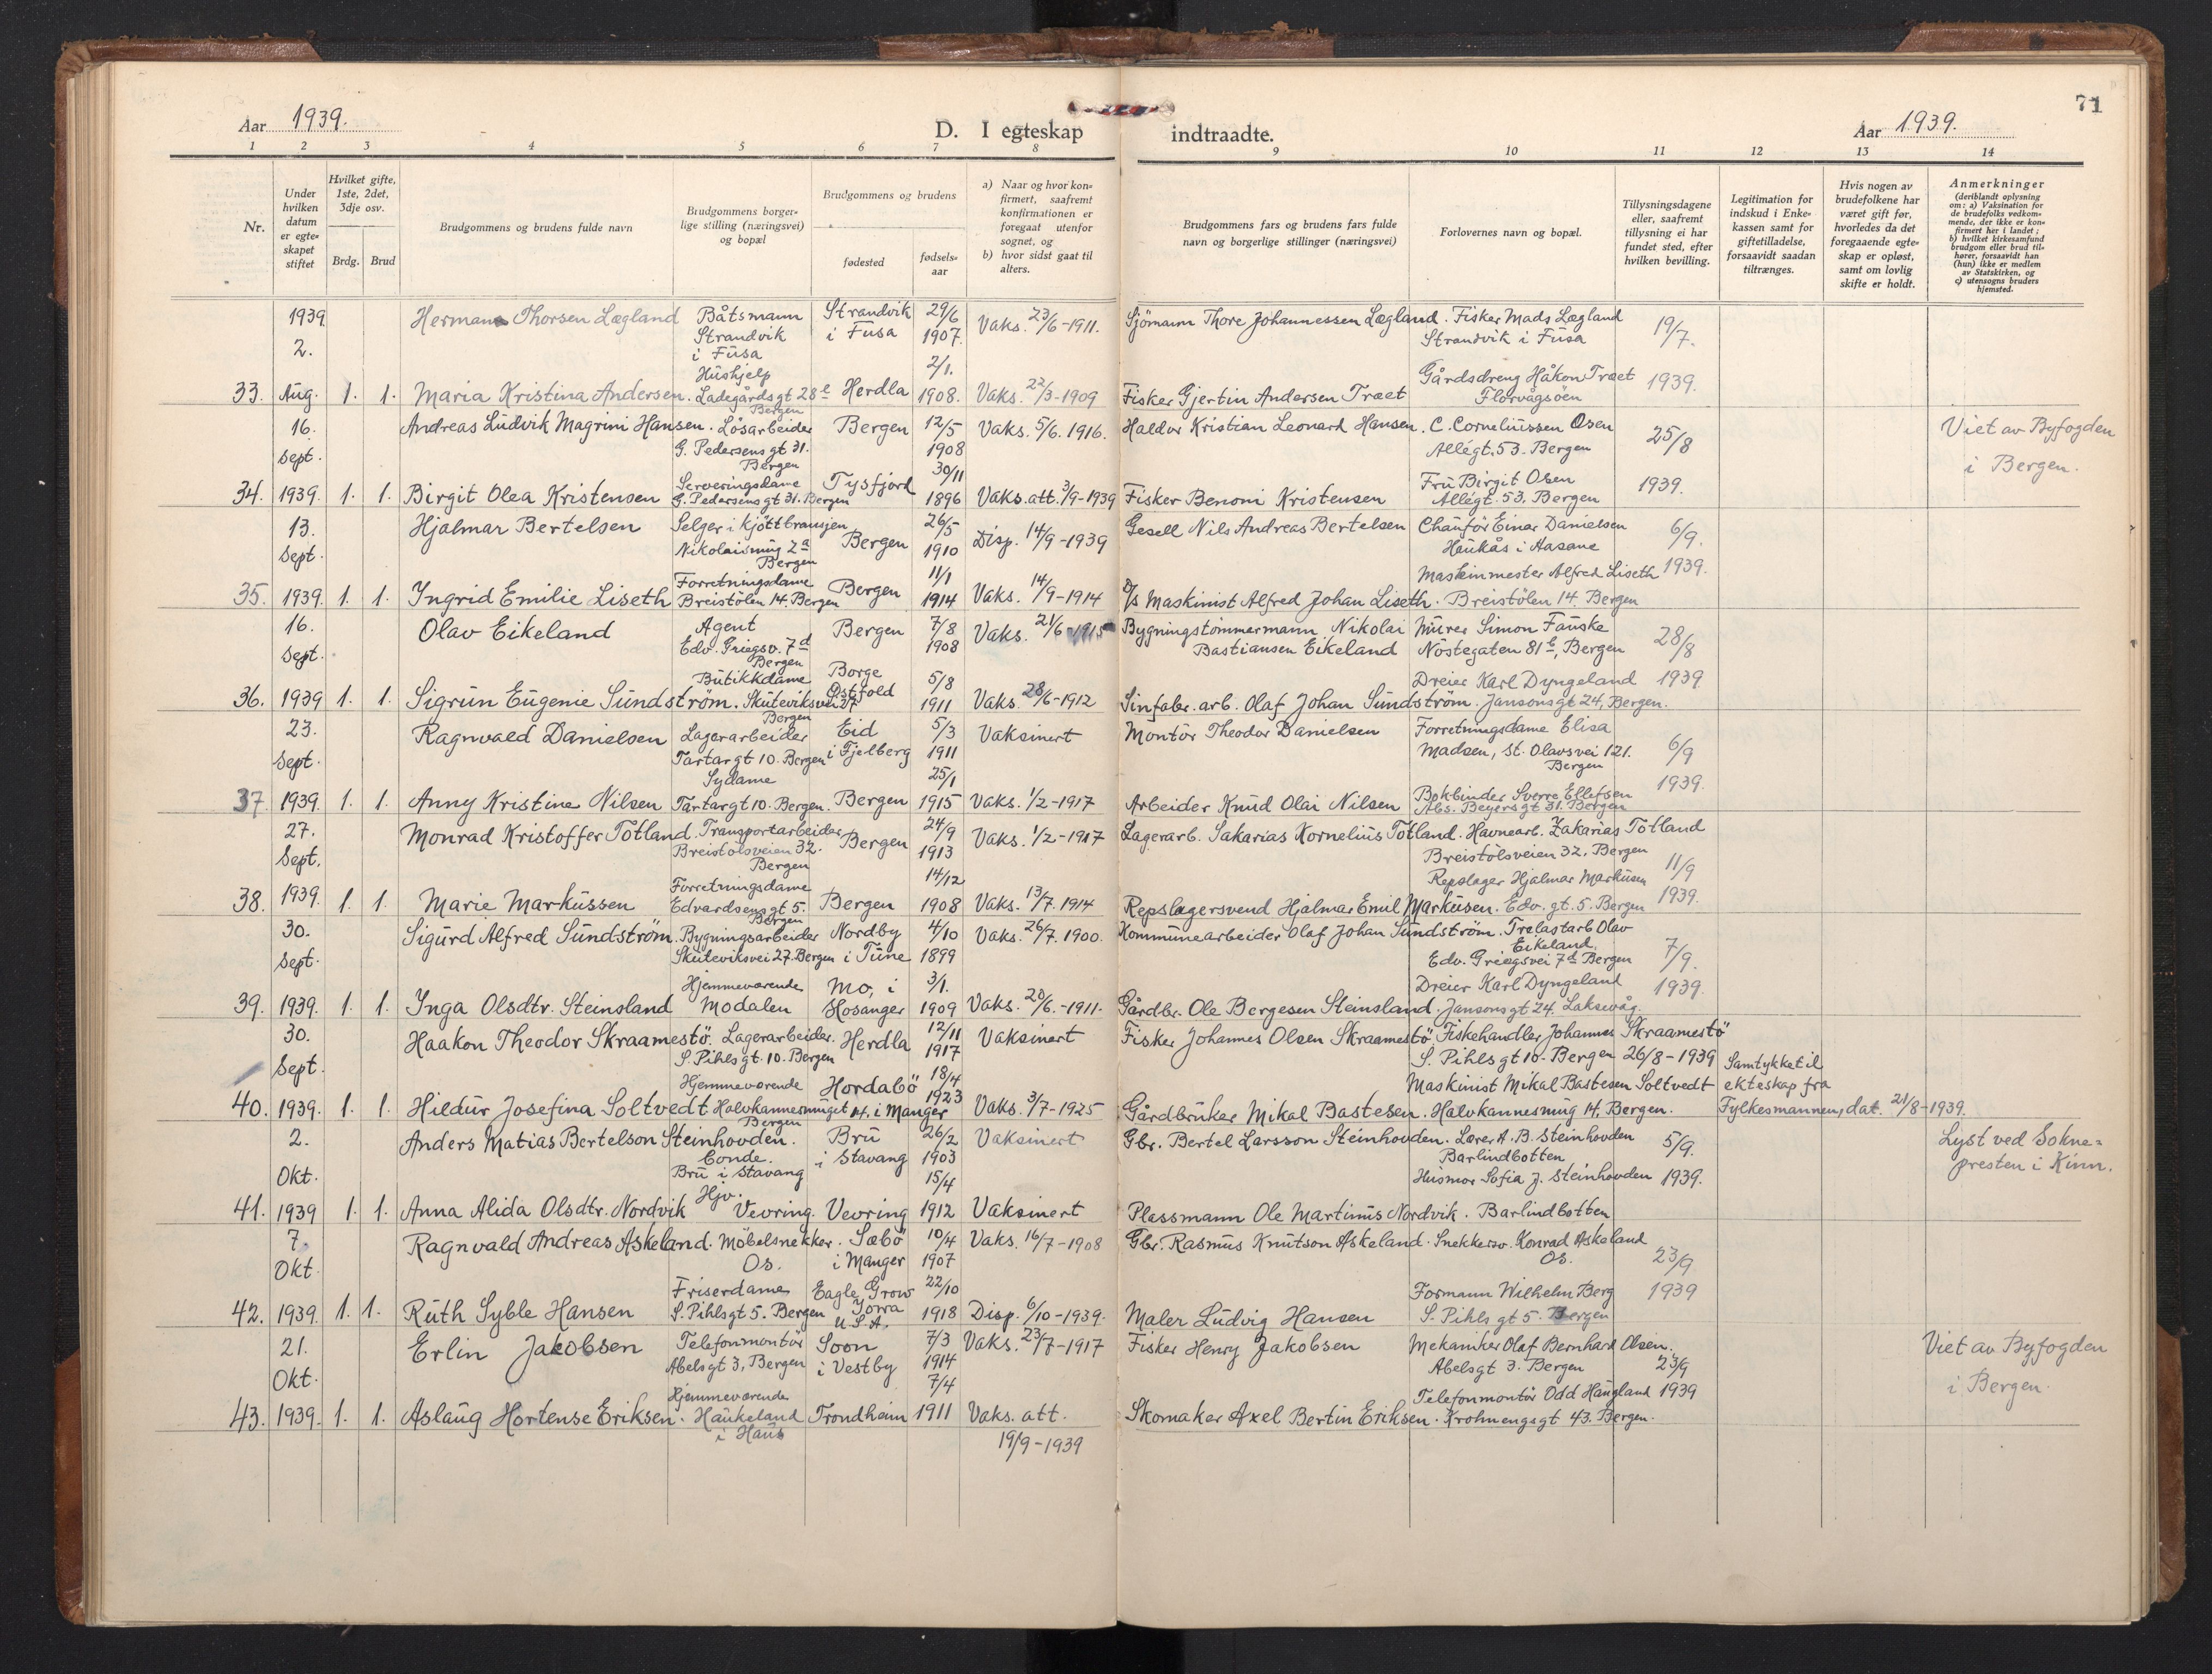 Aar 1939.
D. I egteskap indtraadte.
Aar 1939.
71
1 2 3 4 5 6 7 8 9 10 11 12 13 14
Nr.
Under hvilken datum er egteskapet stiftet
Hvilket gifte, 1ste, 2det, 3dje osv.
Brdg. Brud
Brudgommens og brudens fulde navn
Brudgommens borgerlige stilling (næringsvei) og bopæl
Brudgommens og brudens
fødested
fødselsaar
a) Naar og hvor konfirmert, saafremt konfirmationen er foregaat utenfor sognet, og
b) hvor sidst gaat til alters.
Brudgommens fars og brudens fars fulde navn og borgerlige stillinger (næringsvei)
Forlovernes navn og bopæl.
Tillysningsdagene eller, saafremt tillysning ei har fundet sted, efter hvilken bevilling.
Legitimation for indskud i Enkekassen samt for giftetilladelse, forsaavidt saadan tiltrænges.
Hvis nogen av brudefolkene har været gift før, hvorledes da det foregaaende egteskap er opløst, samt om lovlig skifte er holdt.
Anmerkninger
(deriblandt oplysning om: a) Vaksination for de brudefolks vedkommende, der ikke er konfirmert her i landet;
b) hvilket kirkesamfund brudgom eller brud tilhører, forsaavidt han (hun) ikke er medlem av Statskirken, og
c) utensogns bruders hjemsted.
33. 1939 2. Aug. 1. 1.
Herman Thorsen Lægland Båtsmann Strandvik i Fusa Strandvik i Fusa 29/6 1907. Vaks. 23/6-1911. Sjömann Thore Johannessen Lægland. Fisker Mads Lægland Strandvik i Fusa 19/7. 1939.
Maria Kristina Andersen. Hushjelp Ladegårdsgt 28e Bergen Herdla 2/1. 1908. Vaks. 22/3-1909 Fisker Gjertin Andersen Træet Gårdsdreng Håkon Træet Florvågsöen
34. 16. Sept. 1939. 1. 1.
Andreas Ludvik Magrini Hansen. Lösarbeider G. Pedersens gt 31. Bergen Bergen 12/5 1908 Vaks. 5/6. 1916. Haldor Kristian Leonard Hansen. C. Corneliussen Osen Allégt. 53. Bergen 25/8 1939. Viet av Byfogden i Bergen.
Birgit Olea Kristensen Serveringsdame G. Pedersens gt 31. Bergen Tysfjord 30/11 1896 Vaks. att. 3/9-1939 Fisker Benoni Kristensen Fru Birgit Osen Allégt. 53. Bergen
35. 13. Sept. 1939. 1. 1.
Hjalmar Bertelsen Selger i kjöttbransjen Nikolaismug 2a Bergen Bergen 26/5 1910 Disp. 14/9-1939 Gesell Nils Andreas Bertelsen Chauför Einar Danielsen Haukås i Aasane 6/9. 1939.
Ingrid Emilie Liseth Forretningsdame Breistölen 14. Bergen Bergen 11/1 1914 Vaks. 14/9-1914 D/s Maskinist Alfred Johan Liseth. Maskinmester Alfred Liseth Breistölen 14. Bergen
36. 16. Sept. 1939 1. 1.
Olav Eikeland Agent Edv. Griegsv. 7d Bergen Bergen 7/8 1908 Vaks. 21/6-1915 Bygningstömmermann Nikolai Bastiansen Eikeland Murer Simon Fauske Nöstegaten 81b, Bergen 28/8 1939
Sigrun Eugenie Sundström. Butikkdame Skuteviksvei 27 Bergen Borge Östfold 5/8 1911 Vaks. 28/6-1912 Sinfabr. arb. Olaf Johan Sundström. Dreier Karl Dyngeland Jansonsgt 24, Bergen.
37. 23. Sept. 1939. 1. 1.
Ragnvald Danielsen Lagerarbeider Tartargt 10. Bergen Eid i Fjelberg 5/3 1911 Vaksinert Montör Theodor Danielsen Forretningsdame Elisa Madsen, St. Olavsvei 121. Bergen 6/9 1939.
Anny Kristine Nilsen Sydame Tartargt 10. Bergen. Bergen 25/1 1915 Vaks. 1/2-1917 Arbeider Knud Olai Nilsen Bokbinder Sverre Ellefsen Abs. Beyersgt 31. Bergen
38. 27. Sept. 1939 1. 1.
Monrad Kristoffer Totland. Transportarbeider Breistölsveien 32. Bergen Bergen 24/9 1913 Vaks. 1/2-1917 Lagerarb. Sakarias Kornelius Totland. Havnearb. Zakarias Totland Breistölsveien 32, Bergen 11/9 1939.
Marie Markussen Forretningsdame Edvardsensgt 5. Bergen Bergen 14/12 1908 Vaks. 13/7. 1914 Repslagersvend Hjalmar Emil Markusen. Repslager Hjalmar Markusen Edv. gt. 5. Bergen
39. 30. Sept. 1939. 1. 1.
Sigurd Alfred Sundström. Bygningsarbeider Skuteviksvei 27. Bergen Nordby i Tune 4/10 1899 Vaks. 26/7. 1900. Kommunearbeider Olaf Johan Sundström. Trelastarb Olav Eikeland, Edv. Griegsvei 7d Bergen 7/9. 1939.
Inga Olsdtr. Steinsland Hjemmeværende Modalen Mo, i Hosanger 3/1. 1909 Vaks. 20/6.-1911. Gårdbr. Ole Bergesen Steinsland. Dreier Karl Dyngeland Jansonsgt 24. Laksevåg.
40. 30. Sept. 1939. 1. 1.
Haakon Theodor Skraamestö. Lagerarbeider. S. Pihls gt. 10. Bergen Herdla 12/11 1917 Vaksinert Fisker Johannes Olsen Skraamestö Fiskehandler Johannes Skraamestö S. Pihls gt 10. Bergen 26/8-1939 Samtykke til ekteskap fra Fylkesmannen, dat. 21/8-1939.
Hildur Josefina Soltvedt Hjemmeværende Halvkannesmuget 14. Bergen Hordabö i Manger 18/4 1923 Vaks. 3/7-1925 Gårdbruker Mikal Bastesen. Maskinist Mikal Bastesen Soltvedt Halvkannesmug 14, Bergen.
41. 2. Okt. 1939 1. 1.
Anders Matias Bertelson Steinhovden. Bonde. Bru i Stavang Bru i Stavang 26/2 1903 Vaksinert Gbr. Bertel Larsson Steinhovden. Lærer A. B. Steinhovden Barlindbotten 5/9. 1939. Lyst ved Sokne=presten i Kinn.
Anna Alida Olsdtr. Nordvik Hjv. Vevring. Vevring 15/4 1912 Vaksinert Plassmann Ole Martinus Nordvik. Husmor Sofia J. Steinhovden Barlindbotten
42. 7. Okt. 1939. 1. 1.
Ragnvald Andreas Askeland. Möbelsnekker. Os. Sæbö i Manger 10/4 1907 Vaks. 16/7-1908 Gbr. Rasmus Knutson Askeland. Snekkersv. Konrad Askeland Os. 23/9 1939
Ruth Syble Hansen Friserdame S. Pihlsgt 5. Bergen Eagle Grow Iowa U.S.A. 22/10 1918 Disp. 6/10-1939. Maler Ludvig Hansen Formann Wilhelm Berg S. Pihls gt 5. Bergen
43. 21. Okt. 1939. 1. 1.
Erlin Jakobsen Telefonmontör Abelsgt 3, Bergen Soon i Vestby 7/3 1914 Vaks. 23/7-1917 Fisker Henry Jakobsen Mekaniker Olaf Bernhard Olsen. Abelsgt 3. Bergen 23/9 1939 Viet av Byfogden i Bergen.
Aslaug Hortense Eriksen. Hjemmeværende Haukeland i Haus Trondheim 7/4 1911 Vaks. att. 19/9-1939 Skomaker Axel Bertin Eriksen. Telefonmontör Odd Haugland Krohnengsgt 43. Bergen.